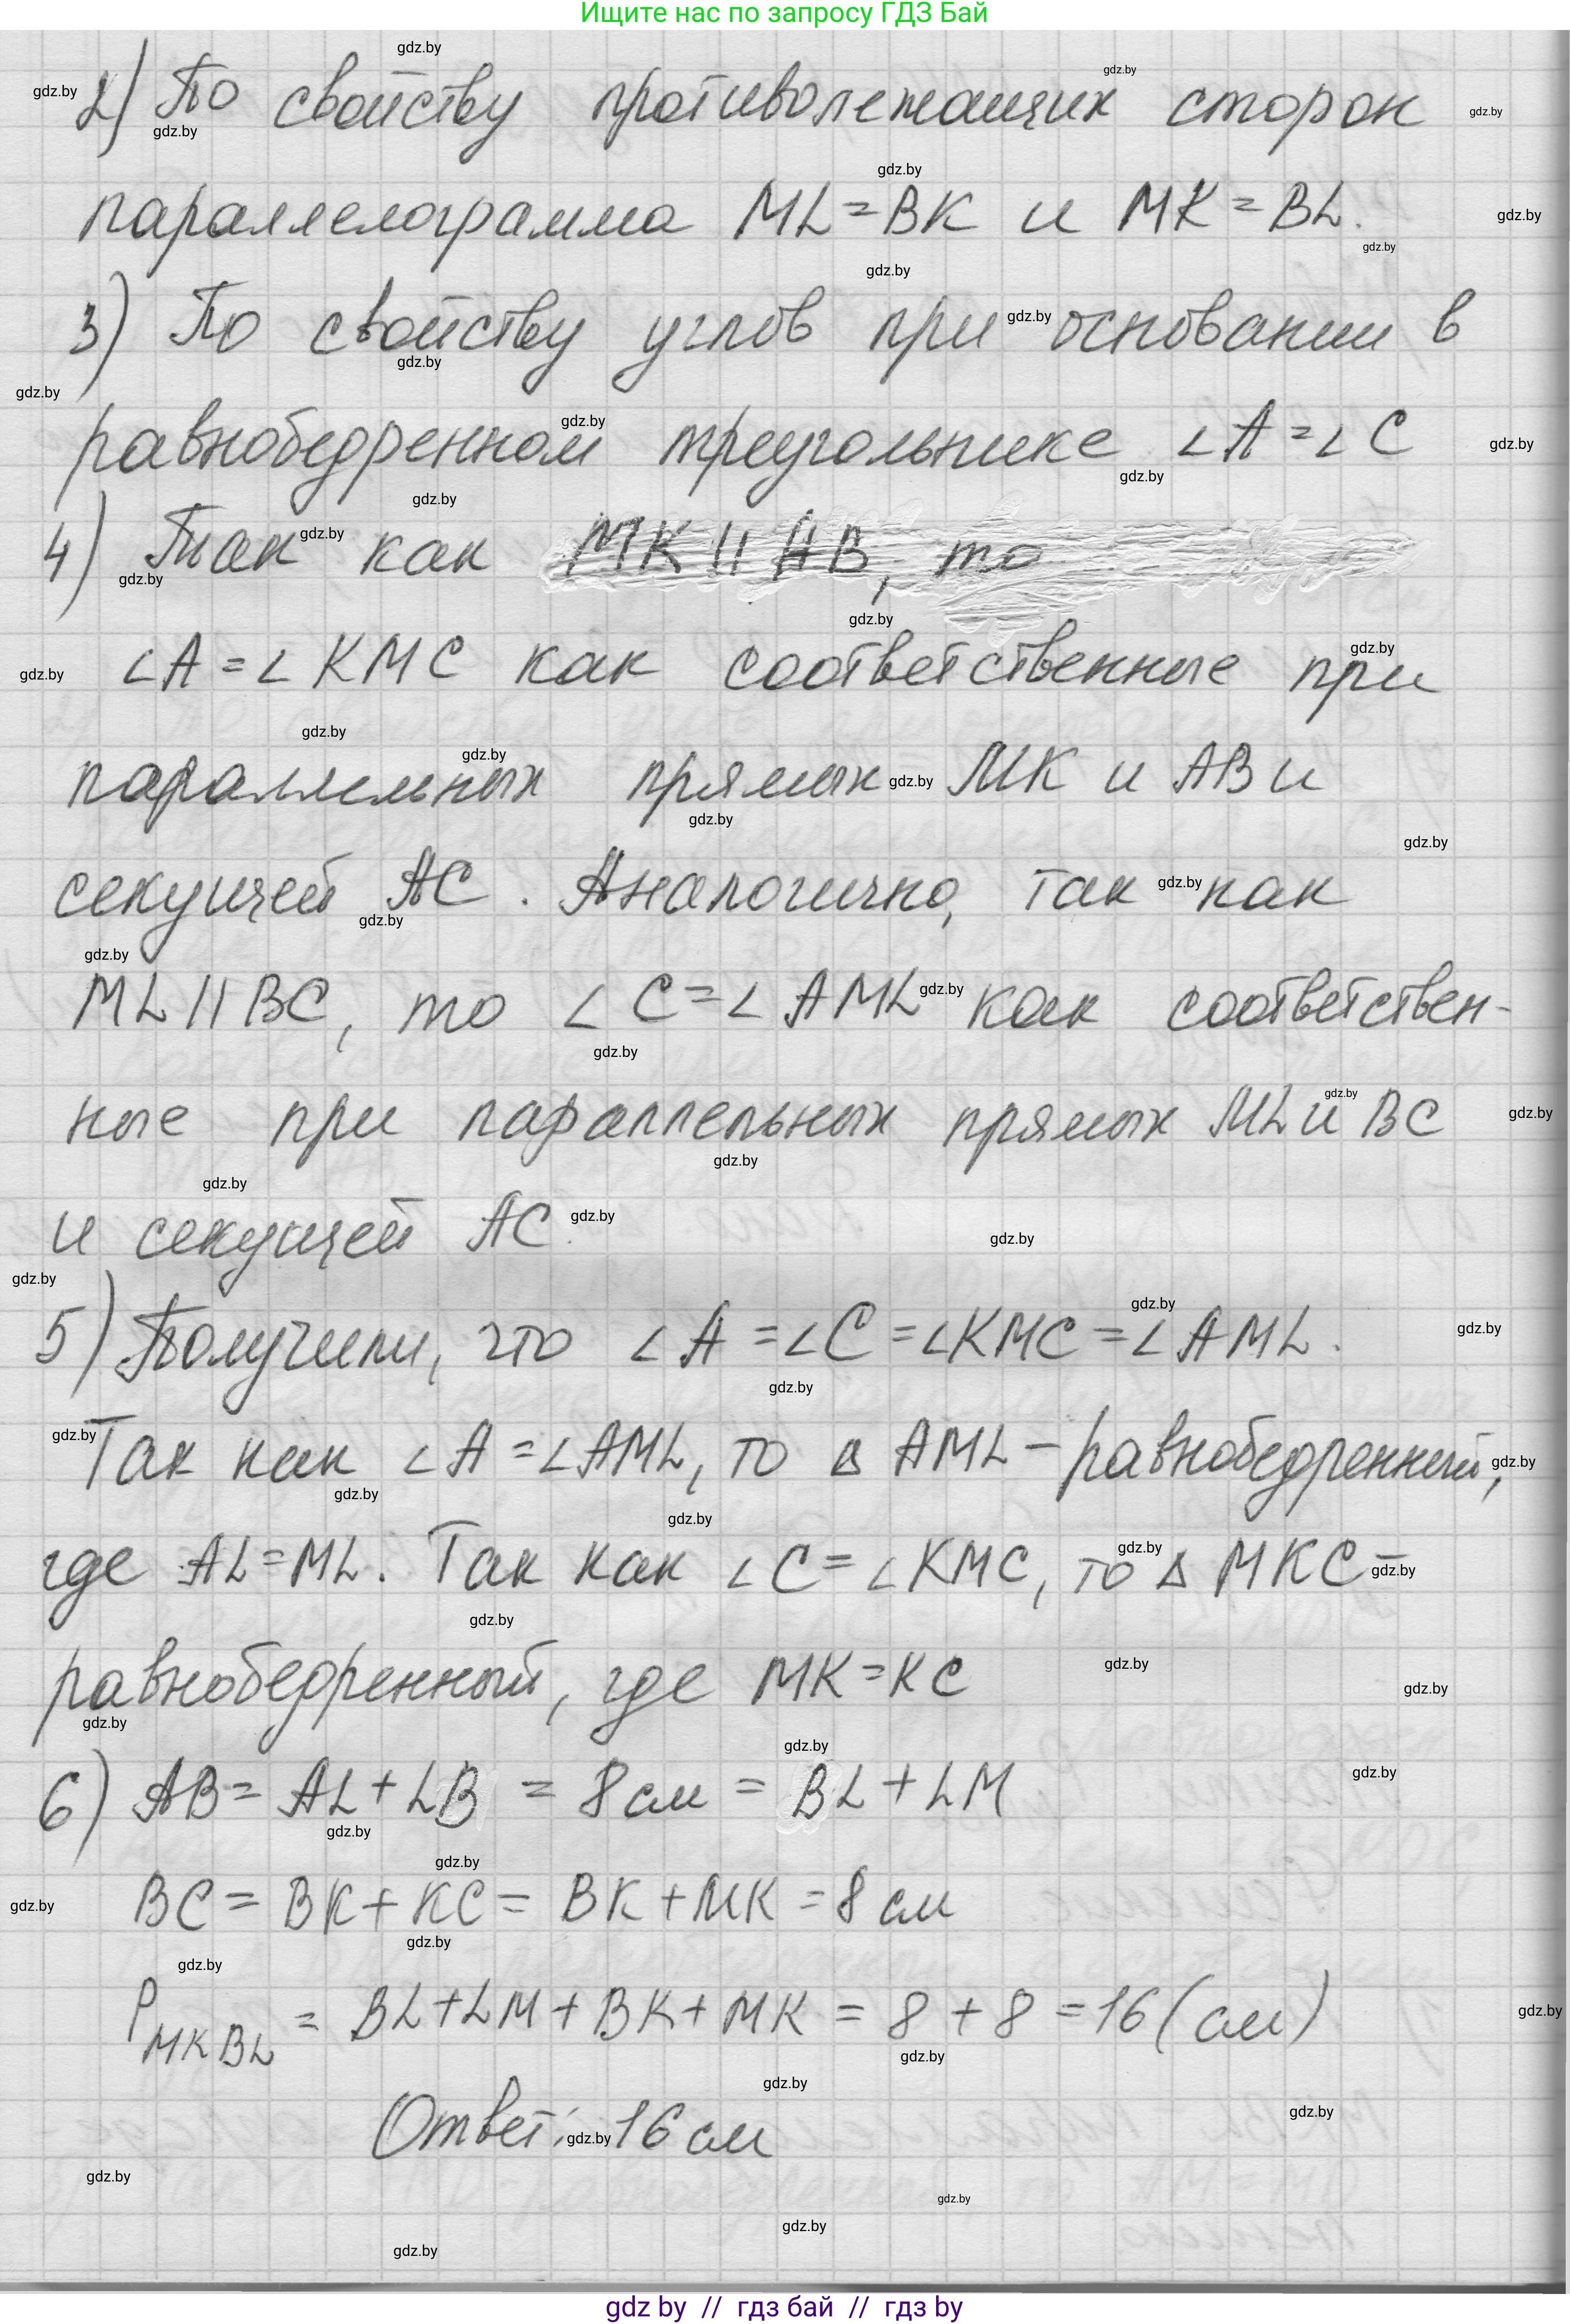 Ищите нас по запросу ГДЗ Бай
2) По свойству противолежащих сторон
параллелограмма ML = BK и MK = BL.
3) По свойству углов при основании в
равнобедренном треугольнике ∠A = ∠C
4) Так как MK || AB, то
∠A = ∠KMC как соответственные при
параллельных прямых MK и AB и
секущей AC. Аналогично, так как
ML || BC, то ∠C = ∠AML как соответствен-
ные при параллельных прямых ML и BC
и секущей AC.
5) Получили, что ∠A = ∠C = ∠KMC = ∠AML.
Так как ∠A = ∠AML, то △ AML – равнобедренный,
где AL = ML. Так как ∠C = ∠KMC, то △ MKC –
равнобедренный, где MK = KC
6) AB = AL + LB = 8 см = BL + LM
BC = BK + KC = BK + MK = 8 см
P MKBL = BL + LM + BK + MK = 8 + 8 = 16 (см)
Ответ: 16 см
gdz by // гдз бай // гдз by